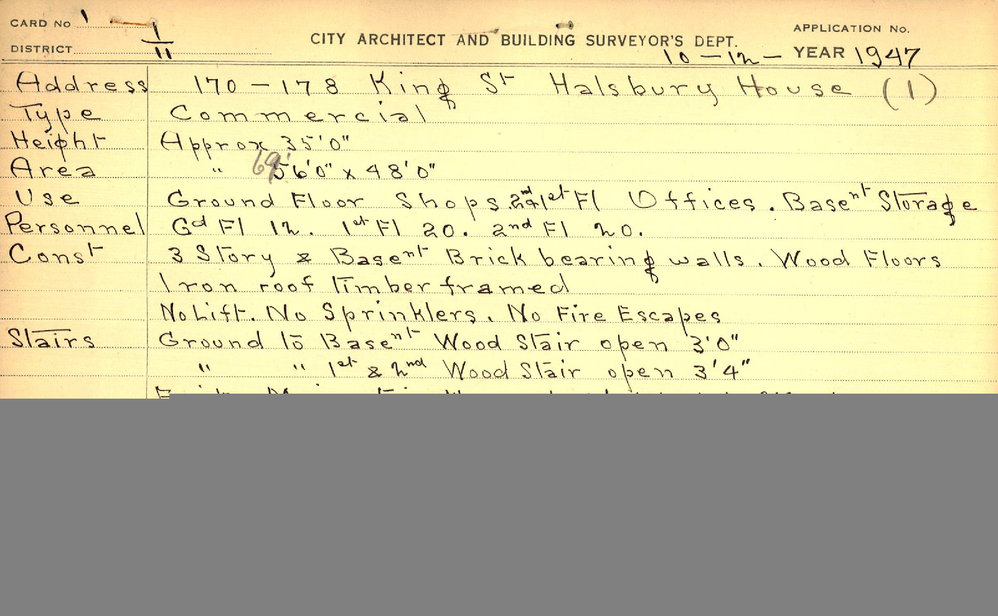 CARD No 1
APPLICATION No.
DISTRICT 1/11
CITY ARCHITECT AND BUILDING SURVEYOR'S DEPT.
10-12- YEAR 1947
Address 170-178 King St Halsbury House (1)
Type Commercial
Height Approx 35'0"
Area " 69' 56'0" x 48'0"
Use Ground Floor Shops 2nd & 1st Fl Offices. Basent Storage
Personnel Gd Fl 12. 1st Fl 20. 2nd Fl 20.
Const 3 Story & Basent Brick bearing walls. Wood Floors
Iron roof Timber framed
No Lift. No Sprinklers. No Fire Escapes
Stairs Ground to Basent Wood Stair open 3'0"
" " 1st & 2nd Wood Stair open 3'4"